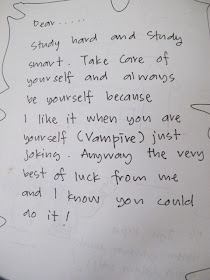 Dear.....
Study hard and study
smart. Take care of
yourself and always
be yourself because
I like it when you are
yourself (Vampire) just
joking. Anyway the very
best of luck from me
and I know you could
do it!